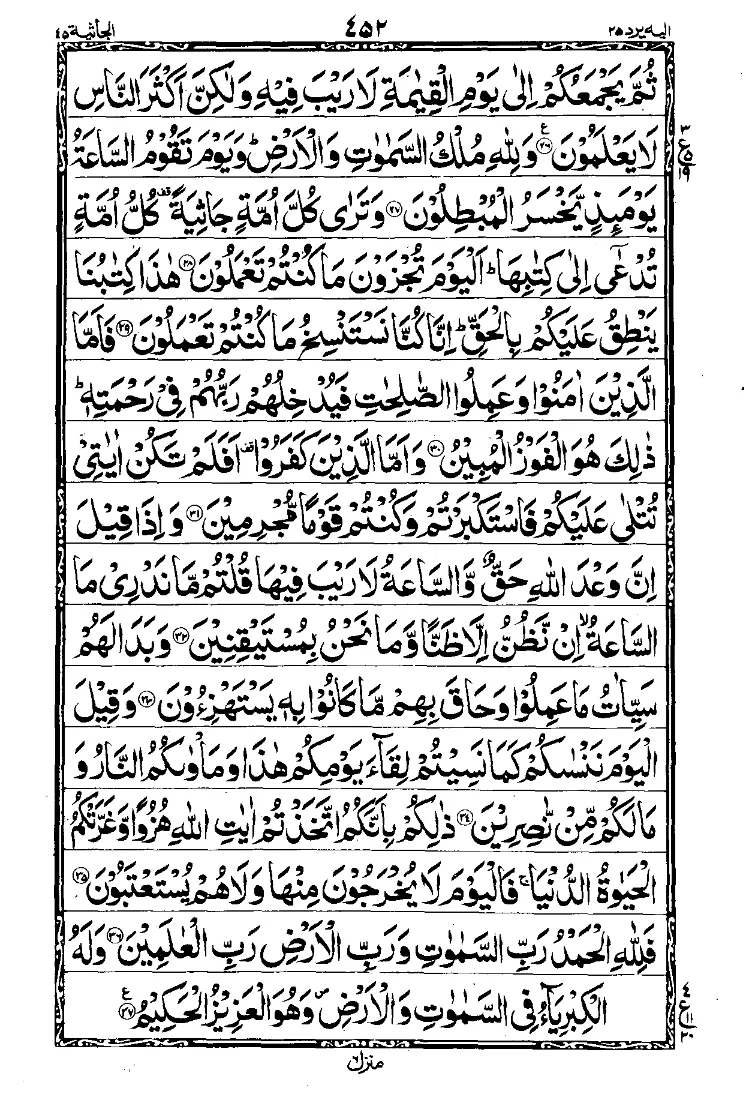 الیه یرد ٢٥ ٤٥٢ الجاثیة ٤٥
ثُمَّ يَجْمَعُكُمْ اِلٰى يَوْمِ الْقِيٰمَةِ لَا رَيْبَ فِيْهِ وَلٰكِنَّ اَكْثَرَ النَّاسِ
لَا يَعْلَمُوْنَ ﴿٢٦﴾ وَلِلّٰهِ مُلْكُ السَّمٰوٰتِ وَالْاَرْضِ ؕ وَيَوْمَ تَقُوْمُ السَّاعَةُ
يَوْمَئِذٍ يَّخْسَرُ الْمُبْطِلُوْنَ ﴿٢٧﴾ وَتَرٰى كُلَّ اُمَّةٍ جَاثِيَةً ۟ كُلُّ اُمَّةٍ
تُدْعٰۤى اِلٰى كِتٰبِهَا ؕ اَلْيَوْمَ تُجْزَوْنَ مَا كُنْتُمْ تَعْمَلُوْنَ ﴿٢٨﴾ هٰذَا كِتٰبُنَا
يَنْطِقُ عَلَيْكُمْ بِالْحَقِّ ؕ اِنَّا كُنَّا نَسْتَنْسِخُ مَا كُنْتُمْ تَعْمَلُوْنَ ﴿٢٩﴾ فَاَمَّا
الَّذِيْنَ اٰمَنُوْا وَعَمِلُوا الصّٰلِحٰتِ فَيُدْخِلُهُمْ رَبُّهُمْ فِيْ رَحْمَتِهٖ ؕ
ذٰلِكَ هُوَ الْفَوْزُ الْمُبِيْنُ ﴿٣٠﴾ وَاَمَّا الَّذِيْنَ كَفَرُوْا ۟ اَفَلَمْ تَكُنْ اٰيٰتِيْ
تُتْلٰى عَلَيْكُمْ فَاسْتَكْبَرْتُمْ وَكُنْتُمْ قَوْمًا مُّجْرِمِيْنَ ﴿٣١﴾ وَاِذَا قِيْلَ
اِنَّ وَعْدَ اللّٰهِ حَقٌّ وَّالسَّاعَةُ لَا رَيْبَ فِيْهَا قُلْتُمْ مَّا نَدْرِيْ مَا
السَّاعَةُ ۙ اِنْ نَّظُنُّ اِلَّا ظَنًّا وَّمَا نَحْنُ بِمُسْتَيْقِنِيْنَ ﴿٣٢﴾ وَبَدَا لَهُمْ
سَيِّاٰتُ مَا عَمِلُوْا وَحَاقَ بِهِمْ مَّا كَانُوْا بِهٖ يَسْتَهْزِءُوْنَ ﴿٣٣﴾ وَقِيْلَ
الْيَوْمَ نَنْسٰىكُمْ كَمَا نَسِيْتُمْ لِقَآءَ يَوْمِكُمْ هٰذَا وَمَاْوٰىكُمُ النَّارُ وَ
مَا لَكُمْ مِّنْ نّٰصِرِيْنَ ﴿٣٤﴾ ذٰلِكُمْ بِاَنَّكُمُ اتَّخَذْتُمْ اٰيٰتِ اللّٰهِ هُزُوًا وَّغَرَّتْكُمُ
الْحَيٰوةُ الدُّنْيَا ۚ فَالْيَوْمَ لَا يُخْرَجُوْنَ مِنْهَا وَلَا هُمْ يُسْتَعْتَبُوْنَ ﴿٣٥﴾
فَلِلّٰهِ الْحَمْدُ رَبِّ السَّمٰوٰتِ وَرَبِّ الْاَرْضِ رَبِّ الْعٰلَمِيْنَ ﴿٣٦﴾ وَلَهُ
الْكِبْرِيَآءُ فِى السَّمٰوٰتِ وَالْاَرْضِ ۪ وَهُوَ الْعَزِيْزُ الْحَكِيْمُ ﴿٣٧﴾
٣ ع ٥ ١٩
٤ ع ١١ ٢٠
منزل ٦